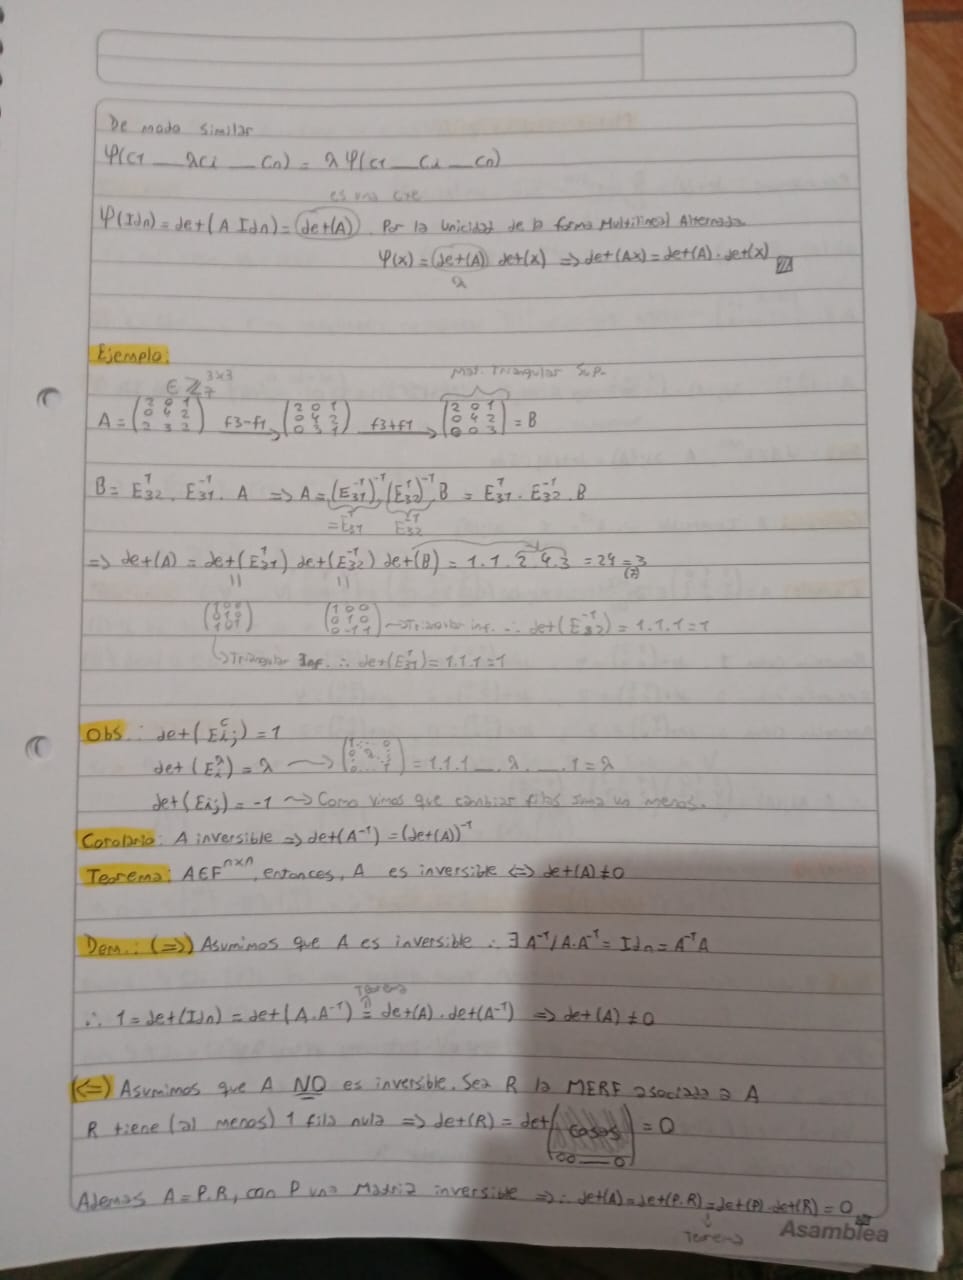 De modo similar
φ(c1 __ λci __ cn) = λ φ(c1 __ ci __ cn)
es una cte
φ(Idn) = det(A Idn) = det(A). Por la unicidad de la forma Multilineal Alternada
φ(x) = (det(A)) det(x) ⇒ det(Ax) = det(A) · det(x)
λ
Ejemplo:
∈ Z₇^3x3
Mat. Triangular Sup.
A = (2 0 1 / 0 4 2 / 2 3 2) f3-f1 → (2 0 1 / 0 4 2 / 0 3 1) f3+f1 → (2 0 1 / 0 4 2 / 0 0 3) = B
B = E₃₂^1 . E₃₁^-1 . A ⇒ A = (E₃₁^-1)^-1 (E₃₂^1)^-1 B = E₃₁^1 . E₃₂^-1 . B
= E₃₁^1 E₃₂^-1
⇒ det(A) = det(E₃₁^1) det(E₃₂^-1) det(B) = 1.1.2.4.3 = 24 = 3
(7)
(1 0 0 / 0 1 0 / 1 0 1) (1 0 0 / 0 1 0 / 0 -1 1) → Triangular inf. ∴ det(E₃₂^-1) = 1.1.1 = 1
↳ Triangular Inf. ∴ det(E₃₁^1) = 1.1.1 = 1
Obs.: det(Eij^c) = 1
det(Ei^λ) = λ → = 1.1.1 __ λ __ .1 = λ
det(Eij) = -1 → Como vimos que cambiar filas suma un menos.
Corolario: A inversible ⇒ det(A^-1) = (det(A))^-1
Teorema: A∈F^nxn, entonces, A es inversible ⇔ det(A) ≠ 0
Dem.: (⇒) Asumimos que A es inversible ∴ ∃ A^-1 / A.A^-1 = Idn = A^-1 A
Teorema
∴ 1 = det(Idn) = det(A.A^-1) = det(A) . det(A^-1) ⇒ det(A) ≠ 0
(⇐) Asumimos que A NO es inversible. Sea R la MERF asociada a A
R tiene (al menos) 1 fila nula ⇒ det(R) = det(cosas / 00 __ 0) = 0
Ademas A = P.R, con P una Matriz inversible ⇒ ∴ det(A) = det(P.R) = det(P) . det(R) = 0
Teorema
Asamblea